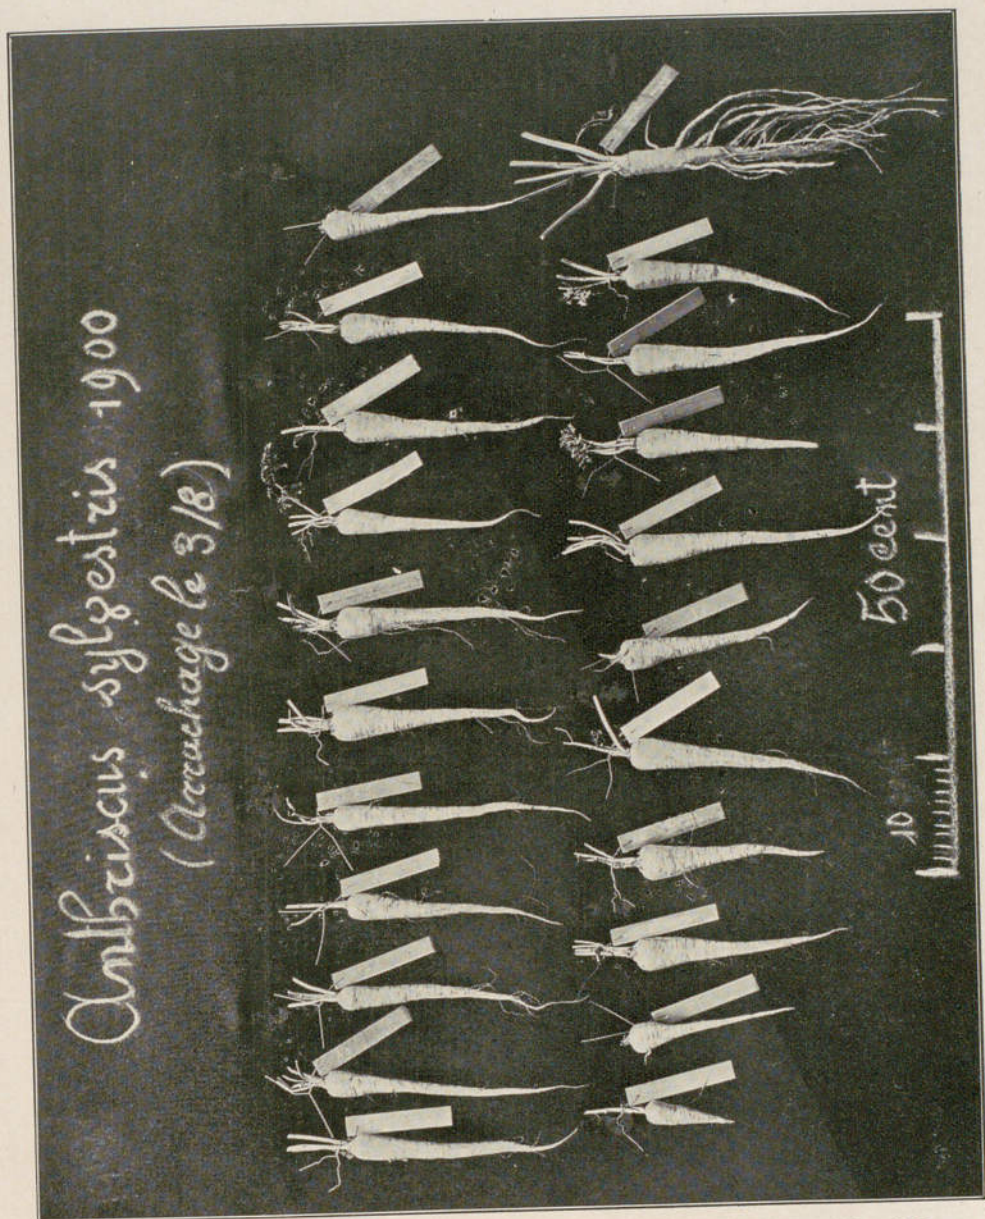 Anthriscus sylvestris 1900
(Arrachage le 3/8)
10
50 cent